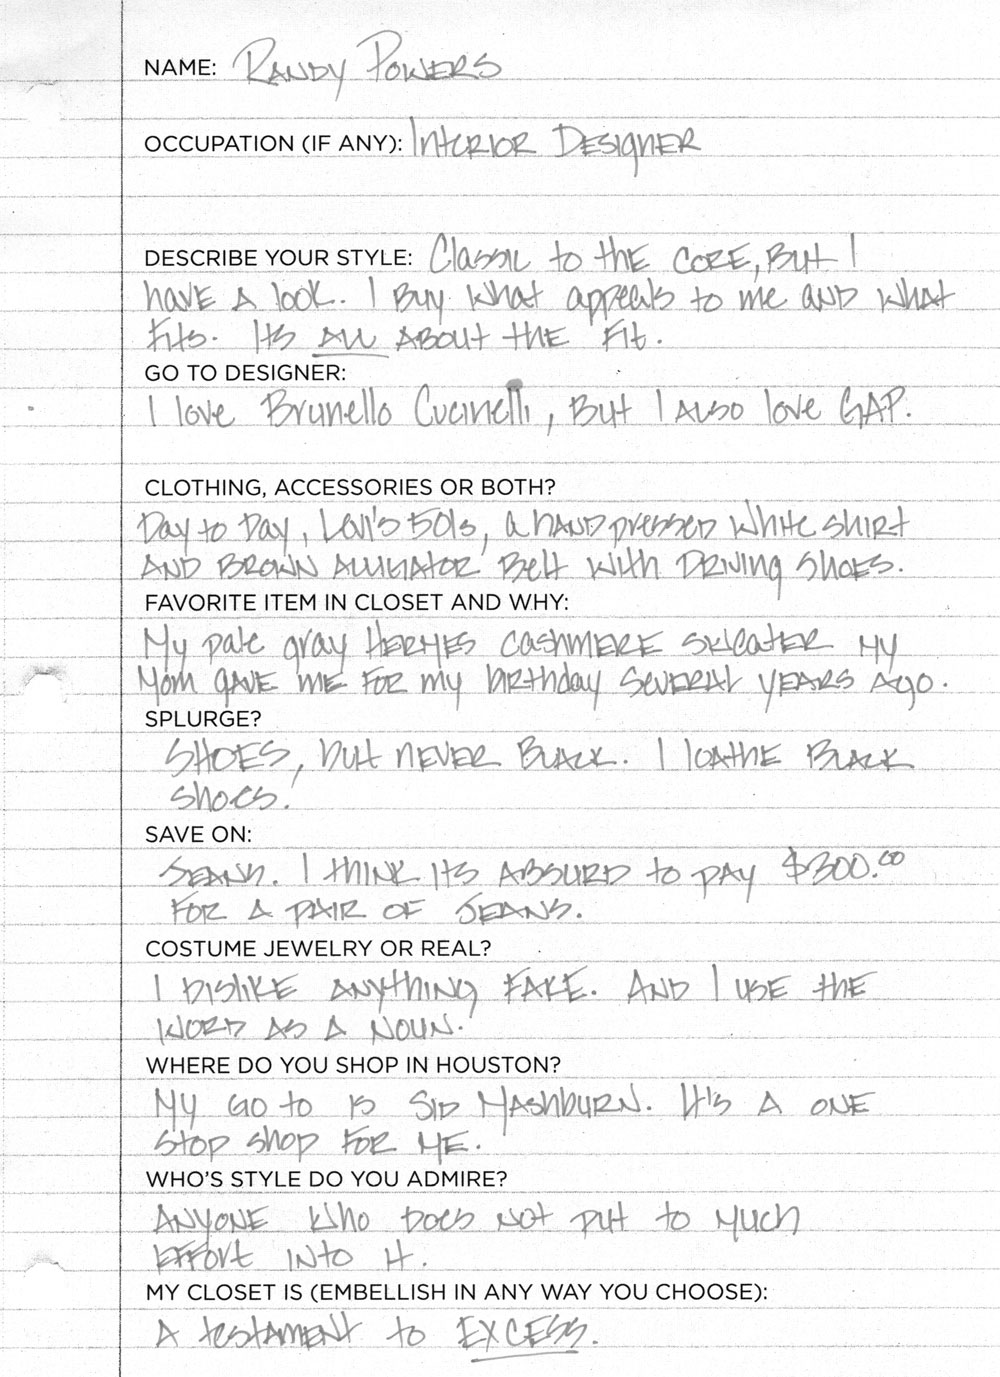 NAME: Randy Powers
OCCUPATION (IF ANY): Interior Designer
DESCRIBE YOUR STYLE: Classic to the core, but I
have a look. I buy what appeals to me and what
fits. Its all about the fit.
GO TO DESIGNER:
I love Brunello Cucinelli, but I also love GAP.
CLOTHING, ACCESSORIES OR BOTH?
Day to day, Levi's 501s, a hand pressed white shirt
and brown alligator belt with driving shoes.
FAVORITE ITEM IN CLOSET AND WHY:
My pale gray Hermes cashmere sweater my
mom gave me for my birthday several years ago.
SPLURGE?
Shoes, but never black. I loathe black
shoes.
SAVE ON:
Jeans. I think its absurd to pay $300.00
for a pair of jeans.
COSTUME JEWELRY OR REAL?
I dislike anything fake. And I use the
word as a noun.
WHERE DO YOU SHOP IN HOUSTON?
My go to is Sid Mashburn. It's a one
stop shop for me.
WHO'S STYLE DO YOU ADMIRE?
Anyone who does not put to much
effort into it.
MY CLOSET IS (EMBELLISH IN ANY WAY YOU CHOOSE):
A testament to excess.